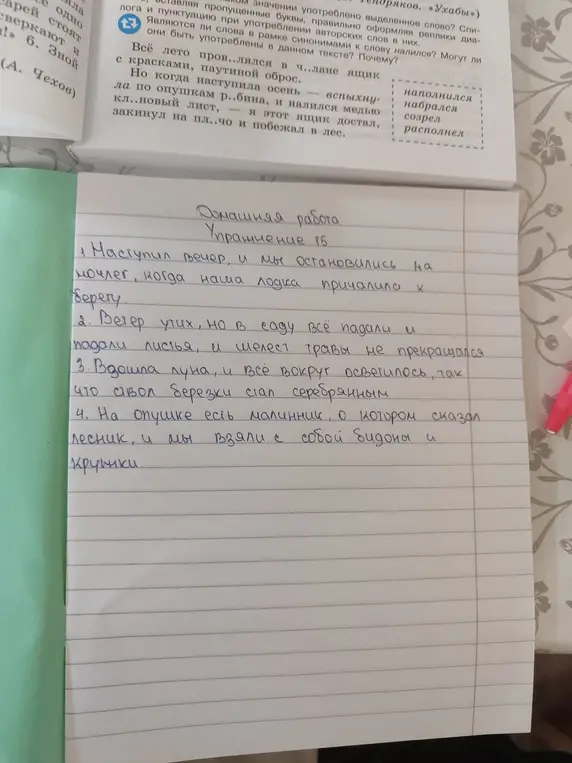 зала
се одно
гарей стоят
сверкают и
!» 6. Зной
(А. Чехов)
Тендряков. «Ухабы»)
значении употреблено выделенное слово? Спи-
вставляя пропущенные буквы, правильно оформляя реплики диа-
лога и пунктуацию при употреблении авторских слов в них.
Являются ли слова в рамке синонимами к слову налился? Могут ли
они быть употреблены в данном тексте? Почему?
Всё лето пров..лялся в ч..лане ящик
с красками, паутиной оброс.
Но когда наступила осень — вспыхну-
ла по опушкам р..бина, и налился медью
кл..новый лист, — я этот ящик достал,
закинул на пл..чо и побежал в лес.
наполнился
набрался
созрел
располнел
Домашняя работа
Упражнение 15
1. Наступил вечер, и мы остановились на
ночлег, когда наша лодка причалила к
берегу.
2. Ветер утих, но в саду всё падали и
падали листья, и шелест травы не прекращался
3. Взошла луна, и всё вокруг осветилось, так
что ствол березки стал серебрянным
4. На опушке есть малинник, о котором сказал
лесник, и мы взяли с собой бидоны и
кружки.